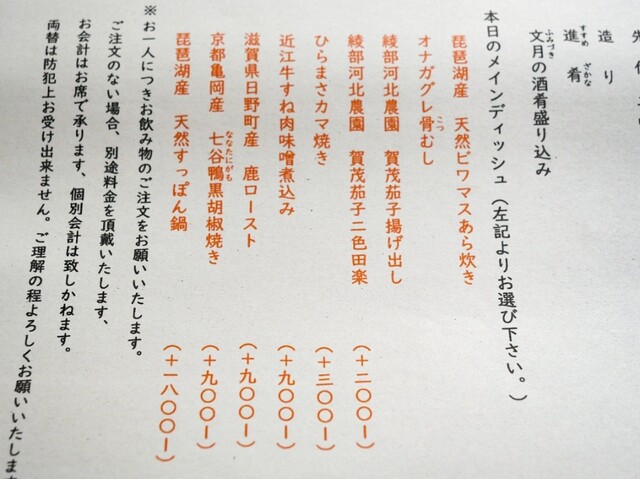 造り
進肴
すすめ ざかな
文月の酒肴盛り込み
ふみづき
本日のメインディッシュ（左記よりお選び下さい。）
琵琶湖産 天然ビワマスあら炊き
オナガグレ骨むし
こつ
綾部河北農園 賀茂茄子揚げ出し
綾部河北農園 賀茂茄子二色田楽 （＋二〇〇ー）
ひらまさカマ焼き （＋三〇〇ー）
近江牛すね肉味噌煮込み （＋九〇〇ー）
滋賀県日野町産 鹿ロースト （＋九〇〇ー）
京都亀岡産 七谷鴨黒胡椒焼き （＋九〇〇ー）
ななたにがも
琵琶湖産 天然すっぽん鍋 （＋一八〇〇ー）
※お一人につきお飲み物のご注文をお願いいたします。
ご注文のない場合、別途料金を頂戴いたします、
お会計はお席で承ります、個別会計は致しかねます。
両替は防犯上お受け出来ません。ご理解の程よろしくお願いいたしま